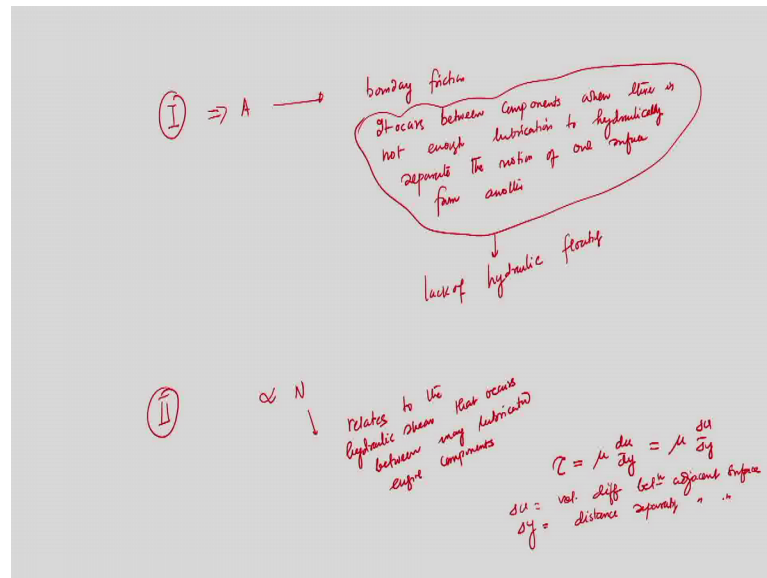 I ⇒ A → bonday friction
It occurs between components when there is
not enough lubrication to hydraulically
separate the motion of one surface
from another
lack of hydraulic floating
II ∝ N
relates to the
hydraulic shear that occurs
between many lubricated
engine components
τ = μ du/dy = μ Δu/Δy
Δu = vel. diff betⁿ adjacent surface
Δy = distance separating " "